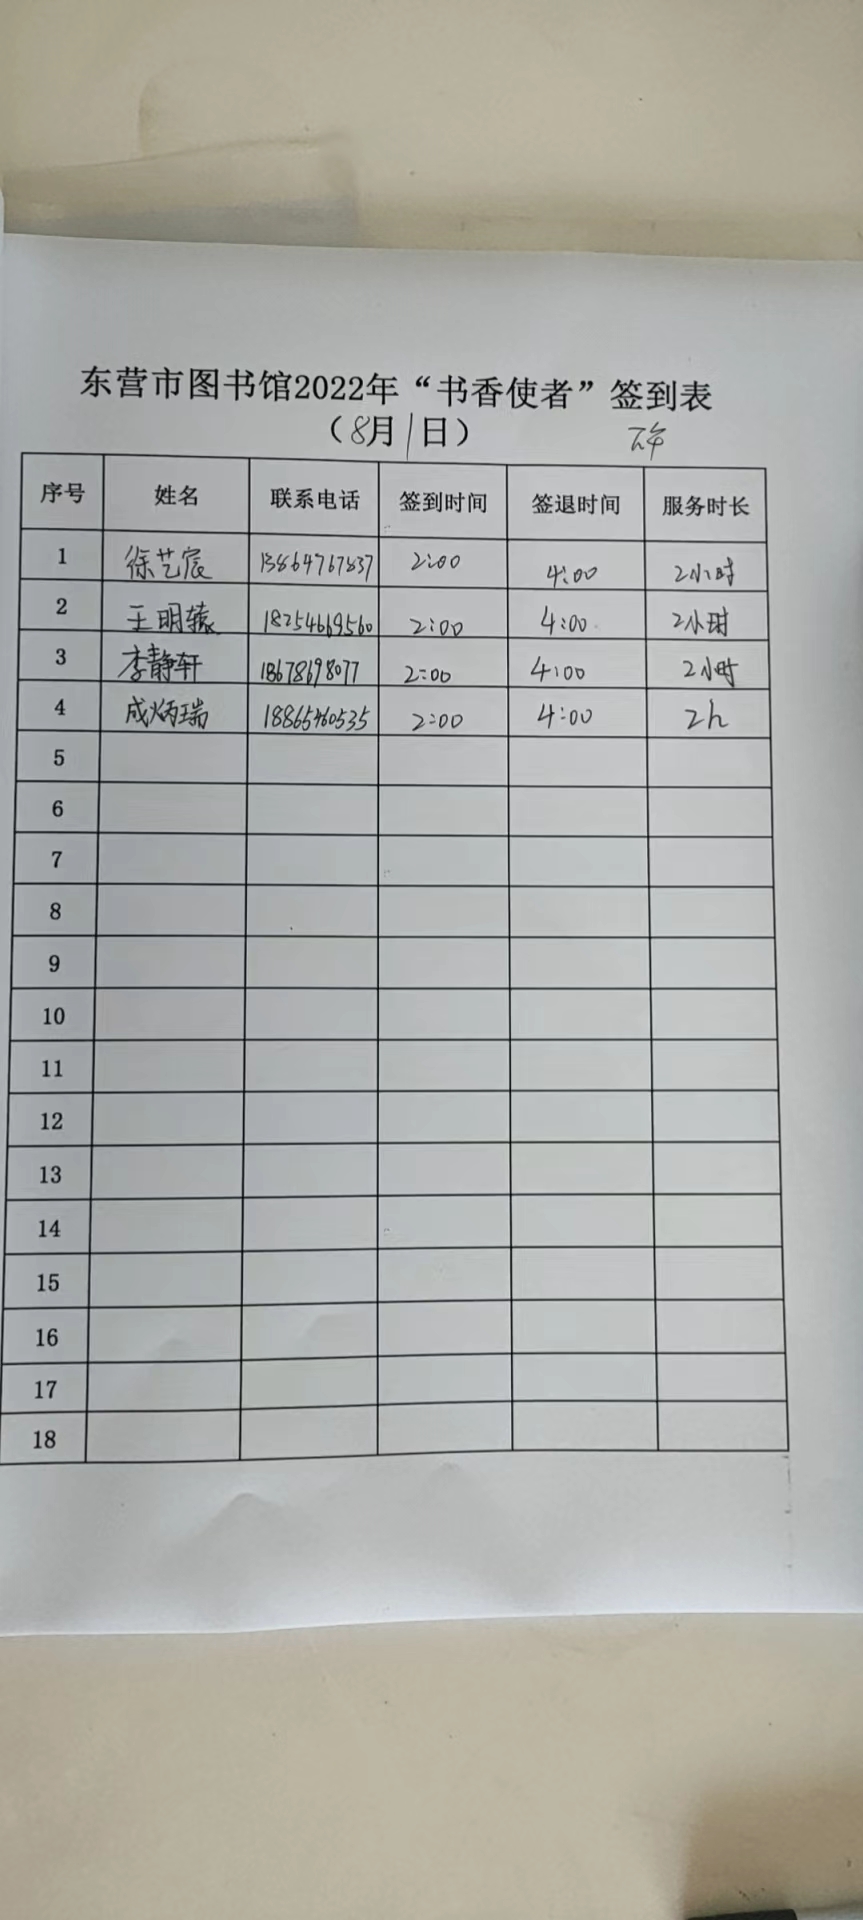 东营市图书馆2022年“书香使者”签到表
（8月1日） 下午
序号 姓名 联系电话 签到时间 签退时间 服务时长
1 徐艺宸 13864767837 2:00 4:00 2小时
2 王明辕 18254669560 2:00 4:00 2小时
3 李静轩 18678698077 2:00 4:00 2小时
4 成炳瑞 18865460535 2:00 4:00 2h
5
6
7
8
9
10
11
12
13
14
15
16
17
18